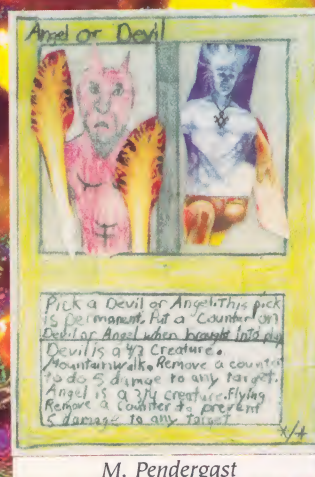 Angel or Devil
Pick a Devil or Angel. This pick
is permanent. Put a Counter on
Devil or Angel when brought into play
Devil is a 4/3 Creature.
Mountainwalk. Remove a counter
to do 5 damage to any target.
Angel is a 3/4 creature. Flying
Remove a Counter to prevent
5 damage to any target
X/4
M. Pendergast